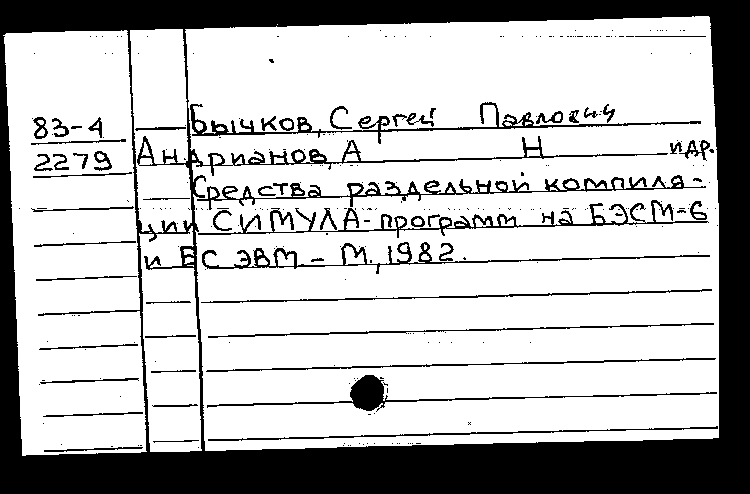 83-4 Бычков, Сергей Павлович
2279 Андрианов, А Н и др.
Средства раздельной компиля-
ции СИМУЛА-программ на БЭСМ-6
и ЕС ЭВМ - М., 1982.